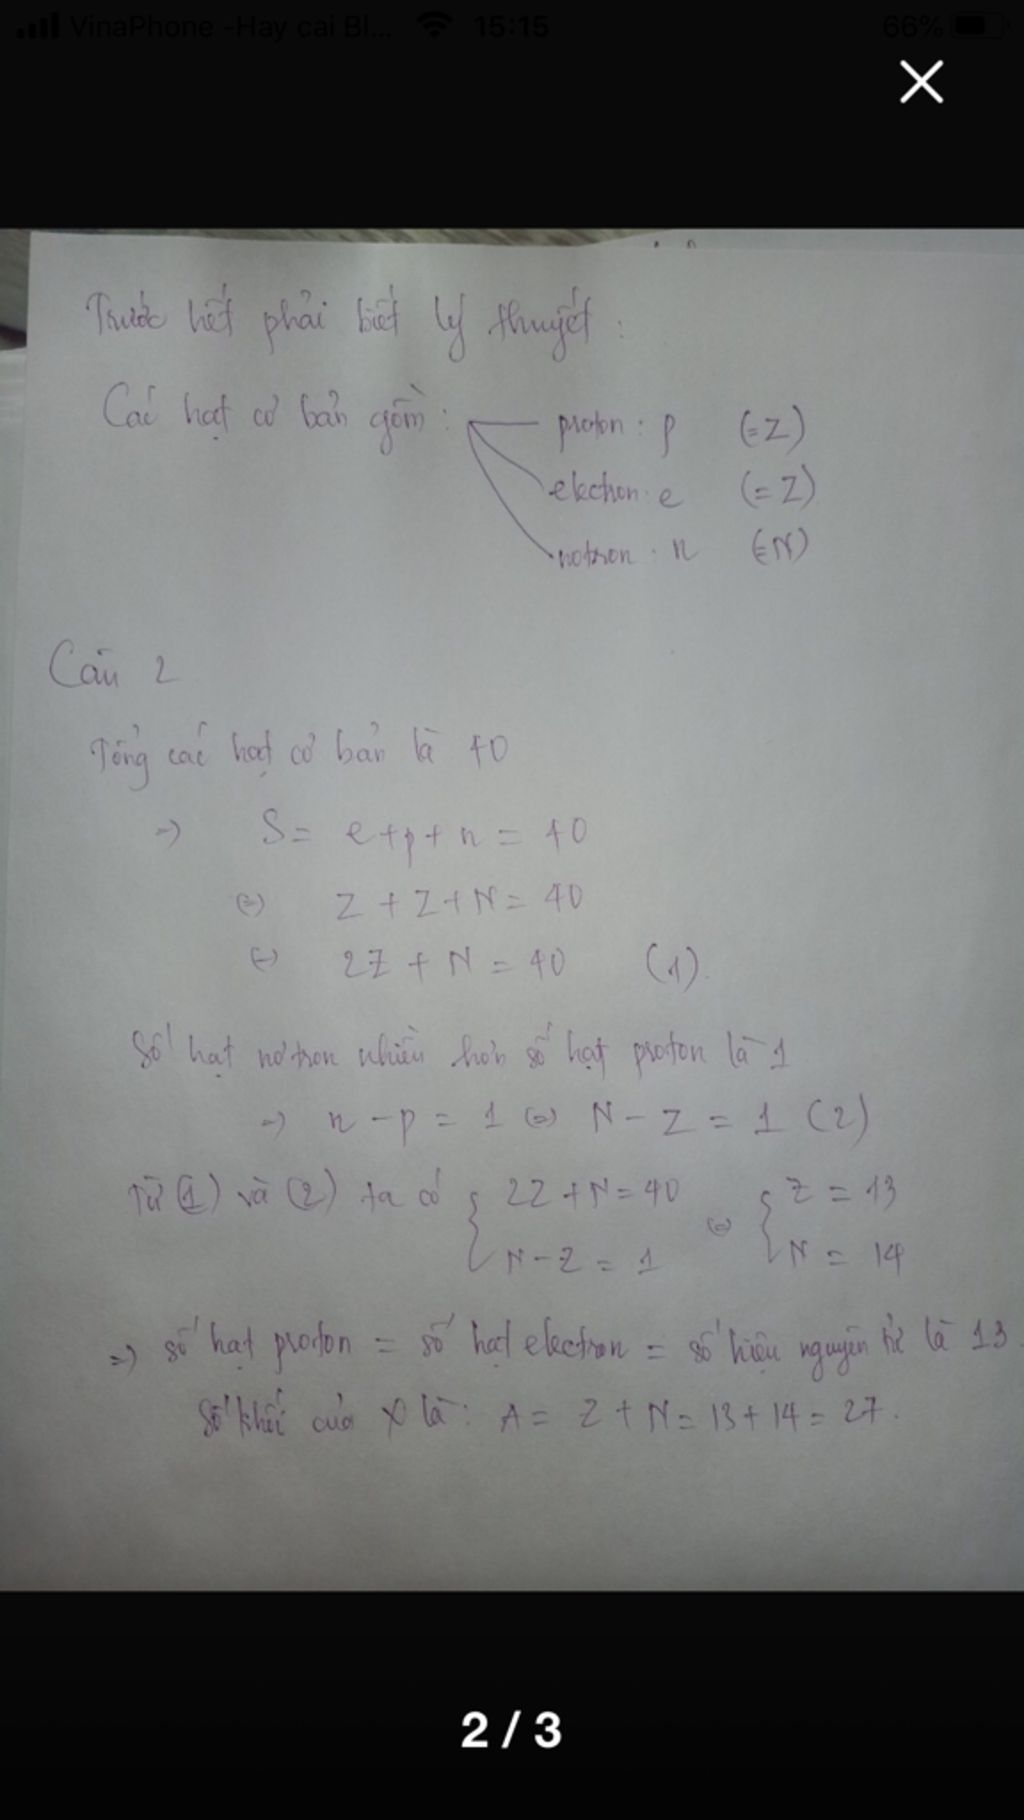 VinaPhone -Hay cai Bl... 15:15 66%
Trước hết phải biết lý thuyết :
Các hạt cơ bản gồm : proton : p (=Z)
electron : e (=Z)
notron : n (=N)
Câu 2
Tổng các hạt cơ bản là 40
=> S = e + p + n = 40
(=) Z + Z + N = 40
(=) 2Z + N = 40 (1).
Số hạt nơtron nhiều hơn số hạt proton là 1
=> n - p = 1 (=) N - Z = 1 (2)
Từ (1) và (2) ta có { 2Z + N = 40 (=) { Z = 13
N - Z = 1 N = 14
=> số hạt proton = số hạt electron = số hiệu nguyên tử là 13
Số khối của X là : A = Z + N = 13 + 14 = 27.
2 / 3